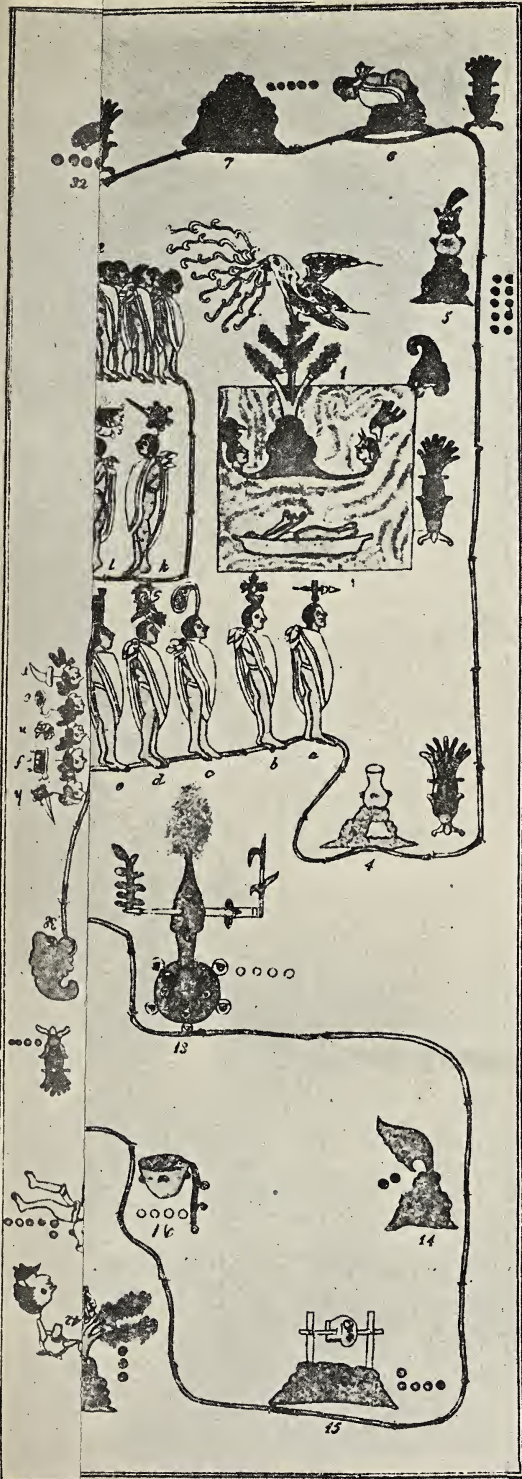 7
6
32
5
1
l
k
e
d
c
b
a
4
13
16
14
15